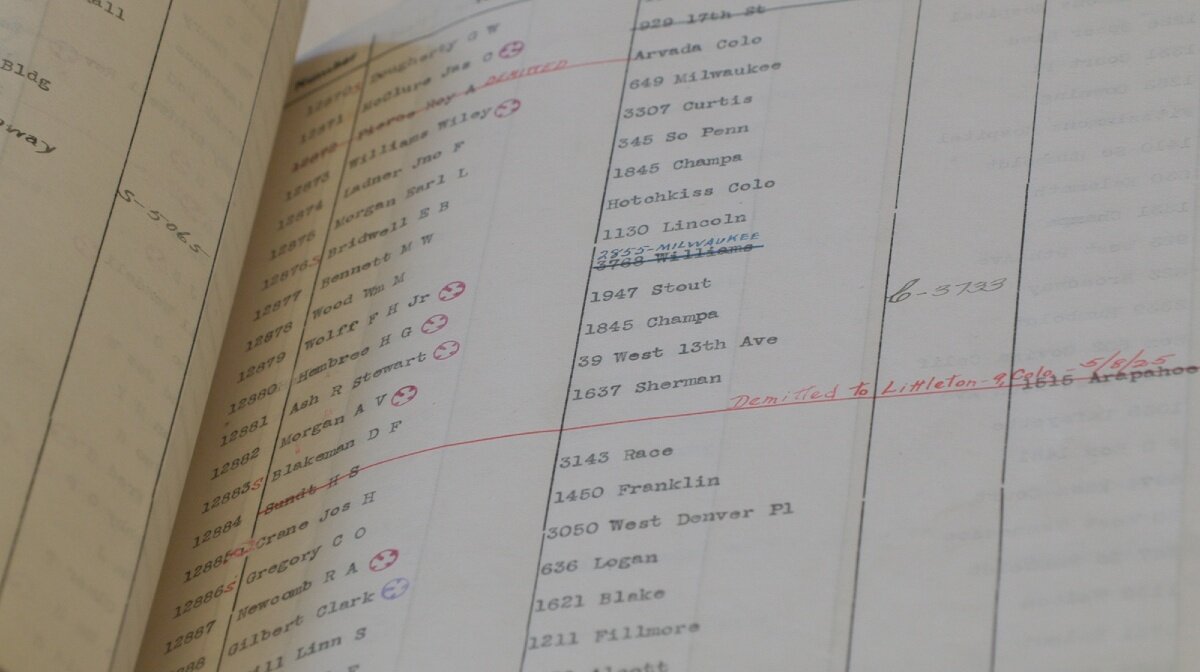 Bldg
S-5065
Number
12870S Dougherty G W 929 17th St
12871 McClure Jas C Arvada Colo
12872 Pierce Roy A DEMITTED
12873 Williams Wiley 649 Milwaukee
12874 Ladner Jno F 3307 Curtis
12875 Morgan Earl L 345 So Penn
12876S Bridwell E B 1845 Champa
12877 Bennett M W Hotchkiss Colo
12878 Wood Wm M 1130 Lincoln
2855-MILWAUKEE
12879 Wolff F H Jr 3768 Williams
12880 Hembree H G 1947 Stout
12881 Ash R Stewart 1845 Champa C-3733
12882 Morgan A V 39 West 13th Ave
12883S Blakeman D F 1637 Sherman
12884 Sundt H S Demitted to Littleton-9, Colo - 5/8/25 1515 Arapahoe
12885 Crane Jos H 3143 Race
12886S Gregory C O 1450 Franklin
12887 Newcomb R A 3050 West Denver Pl
88 Gilbert Clark 636 Logan
ill Linn S 1621 Blake
1211 Fillmore